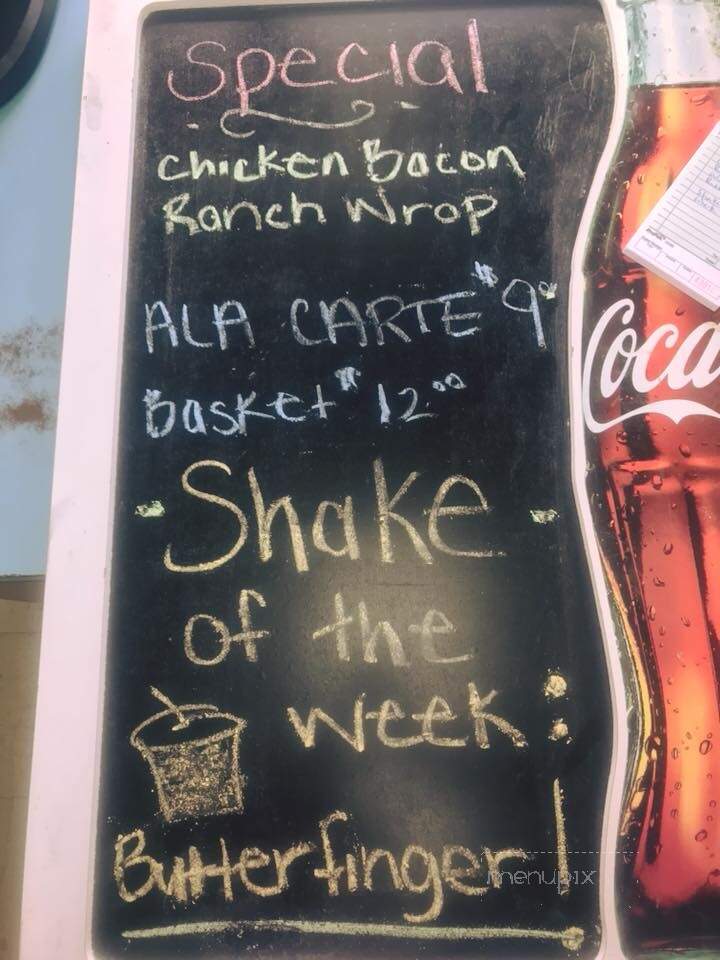 Special
Chicken Bacon
Ranch Wrap
ALA CARTE $9
Basket $12.00
Shake
of the
week:
Butterfinger!
Coca
menupix